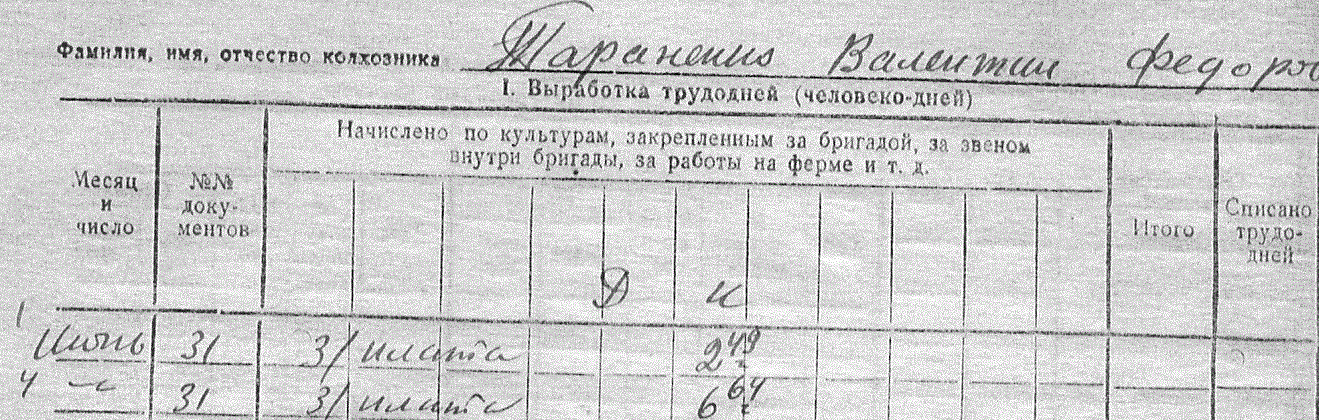 Фамилия, имя, отчество колхозника Тараненко Валентин Федоров
I. Выработка трудодней (человеко-дней)
Месяц и число
№№ доку-
ментов
Начислено по культурам, закрепленным за бригадой, за звеном
внутри бригады, за работы на ферме и т. д.
Итого
Списано
трудо-
дней
Д К
1
Июнь 31 3/ плата 2 49
4 -"- 31 3/ плата 6 64